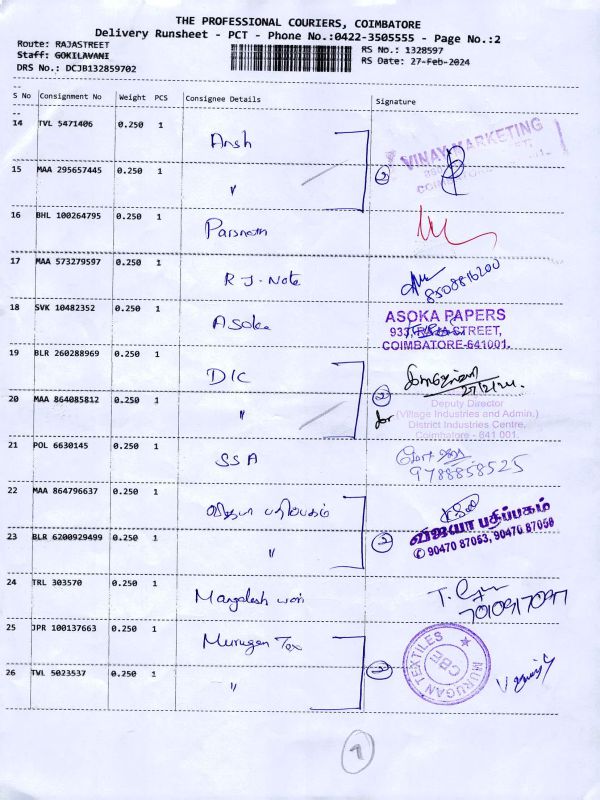 THE PROFESSIONAL COURIERS, COIMBATORE
Delivery Runsheet - PCT - Phone No.:0422-3505555 - Page No.:2
Route: RAJASTREET
Staff: GOKILAVANI
DRS No.: DCJB132859702
RS No.: 1328597
RS Date: 27-Feb-2024
S No Consignment No Weight PCS Consignee Details Signature
14 TVL 5471406 0.250 1 Ansh
VINAY MARKETING
15 MAA 295657445 0.250 1 〃 2
16 BHL 100264795 0.250 1 Parsnath
17 MAA 573279597 0.250 1 R J. Note
8508816200
18 SVK 10482352 0.250 1 Asoka
ASOKA PAPERS
937, RAJA STREET,
COIMBATORE-641001.
19 BLR 260288969 0.250 1 DIC
27/2/24
20 MAA 864085812 0.250 1 〃 2
for
Deputy Director
(Village Industries and Admin.)
District Industries Centre,
Coimbatore - 641 001.
21 POL 6630145 0.250 1 SSA
9788858525
22 MAA 864796637 0.250 1 விஜயா பதிப்பகம்
விஜயா பதிப்பகம்
✆ 90470 87053, 90470 87058
23 BLR 6200929499 0.250 1 〃 2
24 TRL 303570 0.250 1 Mangalesh
7010917097
25 JPR 100137663 0.250 1 Murugan Tex
MURUGAN TEXTILES
CBE
26 TVL 5023537 0.250 1 〃 2